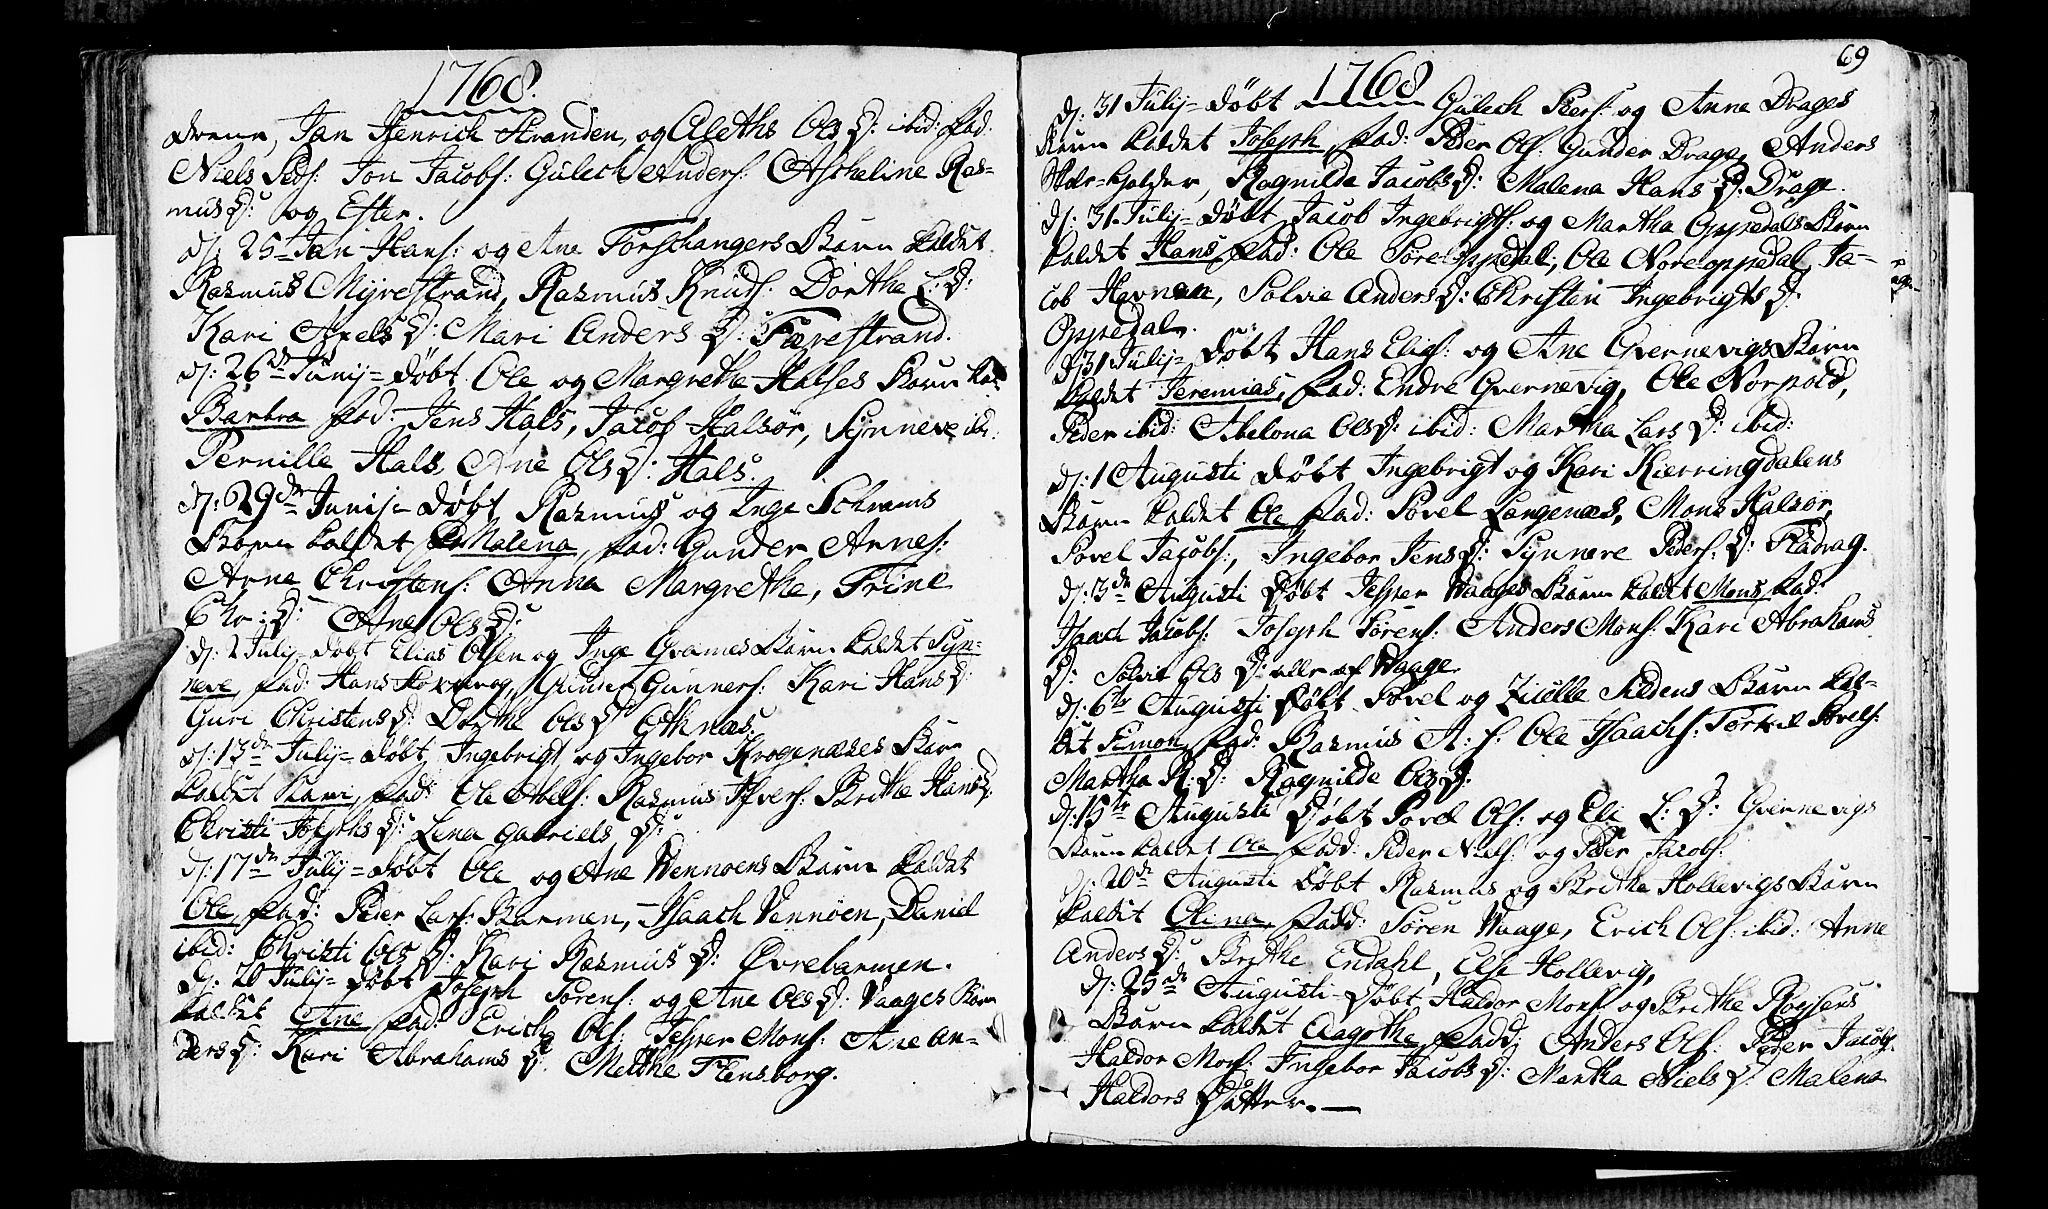 1768.
Jan Henrich Stranden, og Alethe Ols D: ibid: fad:
Niels Peds: Jon Jacobs: Gulech Anders: Ascheline Ras-
mus D: og Ester.
d: 25 Jan Hans: og Ane Torschangers Barn kaldet
Rasmus Myrestrand, Rasmus Knuds: Dorthe L: D:
Kari Axels D: Mari Anders D: Færestrand.
d: 26de Junij = døbt Ole og Margrethe Halses Barn kal:
Barbra fad: Jens Hals, Jacob Halsør, Synneve ibi:
Pernille Hals, Ane Ols D: Hals.
d: 29de Junij = døbt Rasmus og Inge Schrams
Barn kaldet Malena, fad: Gunder Arnes:
Arne Christens: Anna Margrethe, Trine
Chr: D: Ane Ols D:
d: 2 Julij = døbt Elias Olsen og Inge Gvames Barn kaldet Syn-
neve, fad: Hans Gunder Gunners: Kari Hans D:
Guri Christens D: Dorthe Ols D: Othnæs.
d: 13de Julij = døbt, Ingebrigt, og Ingebor Krogenæses Barn
kaldet Kari, fad: Ole Abels: Rasmus Ifvers: Brithe Hans D:
Christi Josephs D: Lena Gabriels D:
d: 17de Julij = døbt Ole og Ane Vennoens Barn kaldet
Ole, fad: Peder Lars: Barmen, Isaach Vennoen, Daniel
ibid: Christi Ols D: Kari Rasmus D: Øvrebarmen.
d: 20 Julij = døbt Joseph Sørens: og Ane Ols D: Vaages Barn
kaldet Ane fad: Erich Ols: Jesper Mons: Ane An-
ders D: Kari Abrahams D: Mette Flensborg.
69
1768
d: 31 Julij = døbt Gulech Peers: og Anne Drages
Barn kaldet Joseph, fad: Peder Ols: Gunder Drage, Anders
Skole-holder, Ragnilde Jacobs D: Malena Hans D: Drage.
d: 31 Julij = døbt Jacob Ingebrigts: og Martha Oppedals Barn
kaldet Hans fad: Ole Søre Oppedal, Ole Noreoppedal, Ja-
cob Havnen, Solvie Anders D: Christen Ingebrigts D:
Oppedal.
d: 31 Julij = døbt Hans Elias: og Ane Gvernevigs Barn
kaldet Jeremias, fad: Endre Gvernevig, Ole Norpold,
Peder ibid: Abelona Ols D: ibid: Martha Lars D: ibid:
d: 1 Augusti døbt Ingebrigt og Kari Kierringdalens
Barn kaldet Ole fad: Povel Langenæs, Mons Halsør,
Povel Jacobs:, Ingebor Jens D: Synnøve Peders: D: Fladrag.
d: 3de Augusti Døbt Jesper Waages Barn kaldet Mons fad:
Isaach Jacobs: Joseph Sørens: Anders Mons: Kari Abrahams
D: Solvie Ols D: alle af Waage.
d: 6te Augusti Døbt Povel og Zidelle Sildens Barn kal-
det Simon, fad: Rasmus A: s: Ole Isaachs: Torkel Povels:
Martha R: D: Ragnilde Ols D:
d: 15te Augusti Døbt Povel Ols: og Eli L: D: Gvernevigs
Barn kaldet Ole fadd: Peder Niels: og Peder Jacobs:
d: 20de Augusti Døbt Rasmus og Brithe Hollevigs Barn
kaldet Olina, fadd: Søren Waage, Erich Ols: ibid: Anne
Anders D: Brithe Endahl, Else Hollevig,
d: 25de Augusti Døbt Haldor Mons: og Brithe Røysens
Barn kaldet Aagothe fadd: Anders Ols: Peder Jacobs:
Haldor Mons: Ingebor Jacobs D: Martha Niels D: Malena
Haldors Datter.